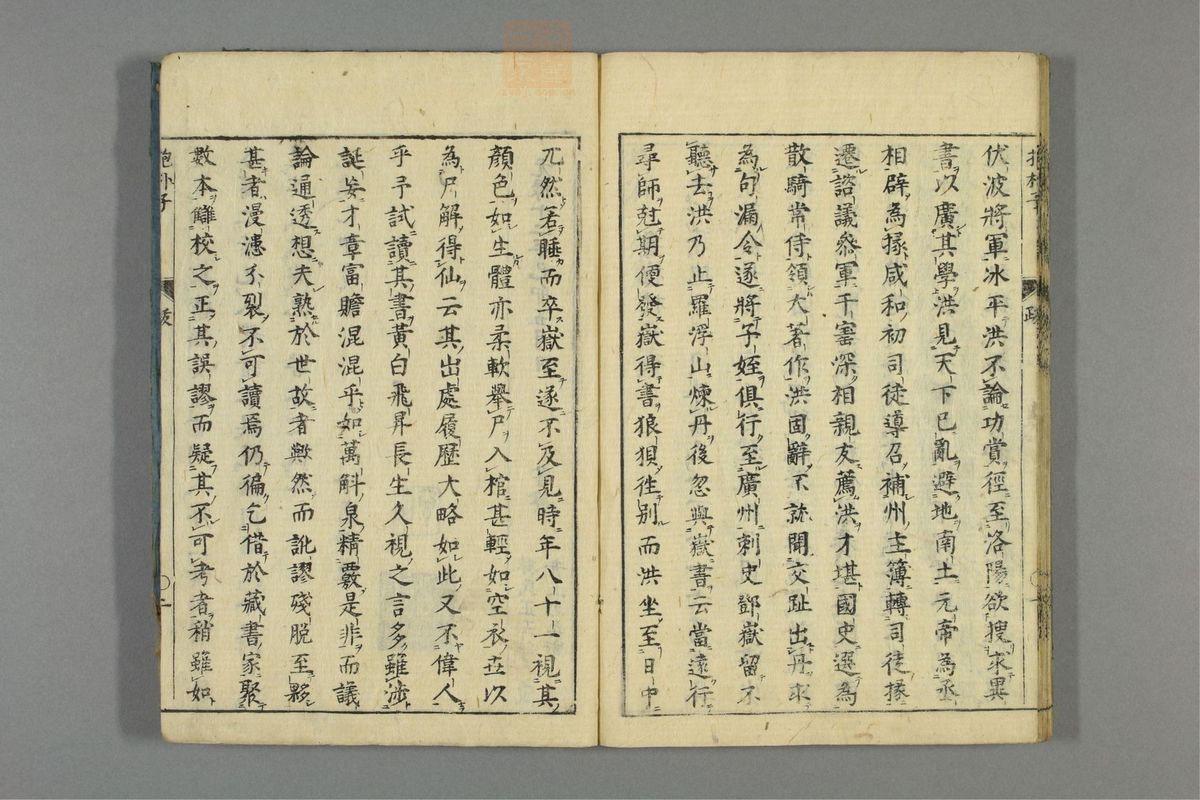 伏波將軍冰平洪不論功賞徑至洛陽欲搜求異
書以廣其學洪見天下已亂避地南土元帝為丞
相辟為掾咸和初司徒導召補州主簿轉司徒掾
遷諮議參軍干寳深相親友薦洪才堪國史選為
散騎常侍領大著作洪固辭不就聞交趾出丹求
為句漏令遂將子姪俱行至廣州刺史鄧嶽留不
聽去洪乃止羅浮山煉丹後忽與嶽書云當遠行
尋師尅期便發嶽得書狼狽徃別而洪坐至日中
兀然若睡而卒嶽至遂不及見時年八十一視其
顔色如生體亦柔軟舉尸入棺甚輕如空衣世以
為尸解得仙云其出處履歷大略如此又不偉人
乎予試讀其書黃白飛昇長生久視之言多雖渉
誕妄才章富贍混混乎如萬斛泉精覈是非而議
論通透想夫熟於世故者歟然而訛謬殘脫至夥
甚者漫漶分裂不可讀焉仍徧乞借於藏書家聚
數本讎校之正其誤謬而疑其不可考者稍雖如
抱朴子
跋
〇二